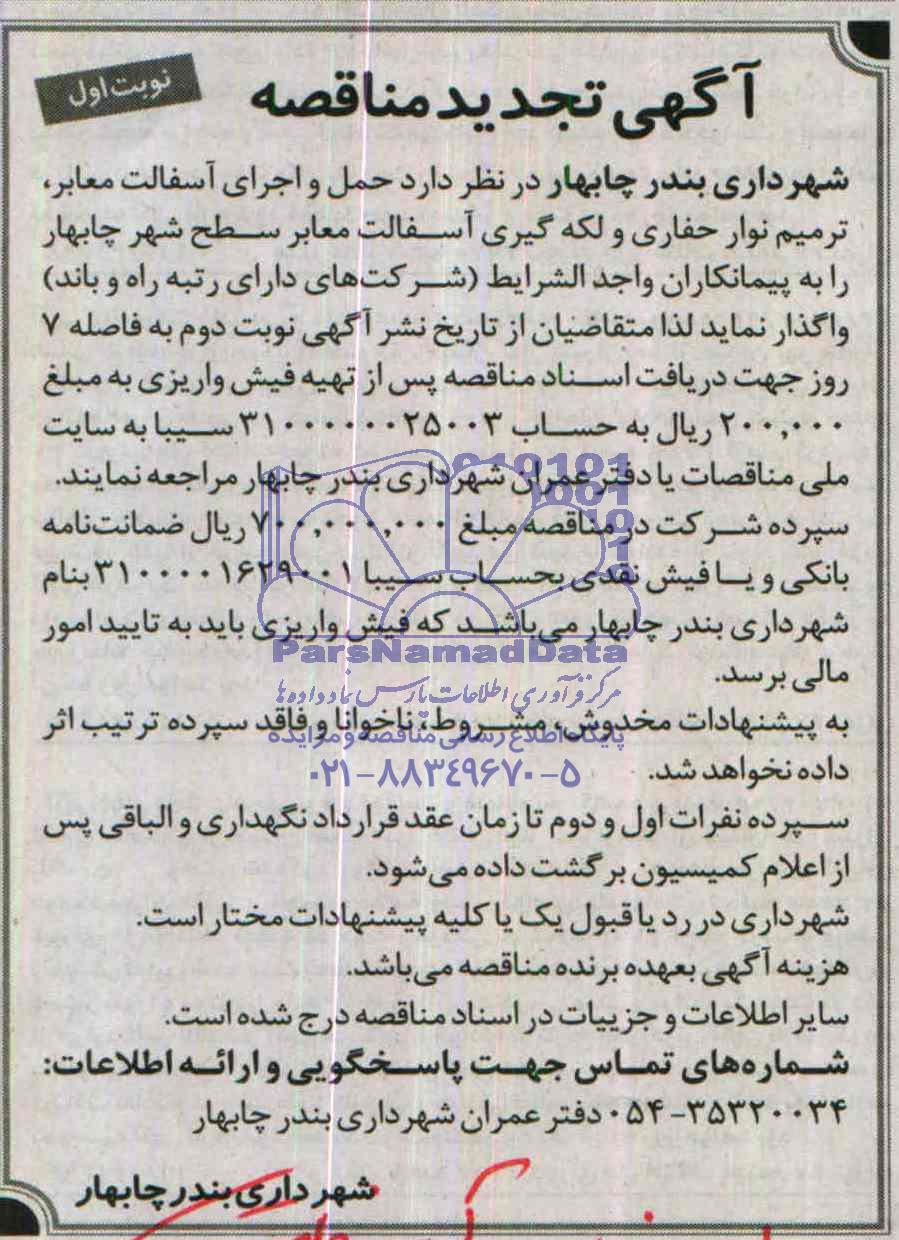 آگهی تجدید مناقصه
نوبت اول
شهرداری بندر چابهار در نظر دارد حمل و اجرای آسفالت معابر،
ترمیم نوار حفاری و لکه گیری آسفالت معابر سطح شهر چابهار
را به پیمانکاران واجد الشرایط (شرکت‌های دارای رتبه راه و باند)
واگذار نماید لذا متقاضیان از تاریخ نشر آگهی نوبت دوم به فاصله ۷
روز جهت دریافت اسناد مناقصه پس از تهیه فیش واریزی به مبلغ
۲۰۰,۰۰۰ ریال به حساب ۳۱۰۰۰۰۰۰۲۵۰۰۳ سیبا به سایت
ملی مناقصات یا دفتر عمران شهرداری بندر چابهار مراجعه نمایند.
سپرده شرکت در مناقصه مبلغ ۷۰۰,۰۰۰,۰۰۰ ریال ضمانت‌نامه
بانکی و یا فیش نقدی بحساب سیبا ۳۱۰۰۰۰۱۶۲۹۰۰۱ بنام
شهرداری بندر چابهار می‌باشد که فیش واریزی باید به تایید امور
ParsNamadData
مالی برسد.
مرکز فرآوری اطلاعات پارس نماد داده‌ها
به پیشنهادات مخدوش، مشروط، ناخوانا و فاقد سپرده ترتیب اثر
پایگاه اطلاع رسانی مناقصه و مزایده
داده نخواهد شد.
۰۲۱-۸۸۳۴۹۶۷۰-۵
سپرده نفرات اول و دوم تا زمان عقد قرارداد نگهداری و الباقی پس
از اعلام کمیسیون برگشت داده می‌شود.
شهرداری در رد یا قبول یک یا کلیه پیشنهادات مختار است.
هزینه آگهی بعهده برنده مناقصه می‌باشد.
سایر اطلاعات و جزییات در اسناد مناقصه درج شده است.
شماره‌های تماس جهت پاسخگویی و ارائه اطلاعات:
۰۵۴-۳۵۳۲۰۰۳۴ دفتر عمران شهرداری بندر چابهار
شهرداری بندر چابهار